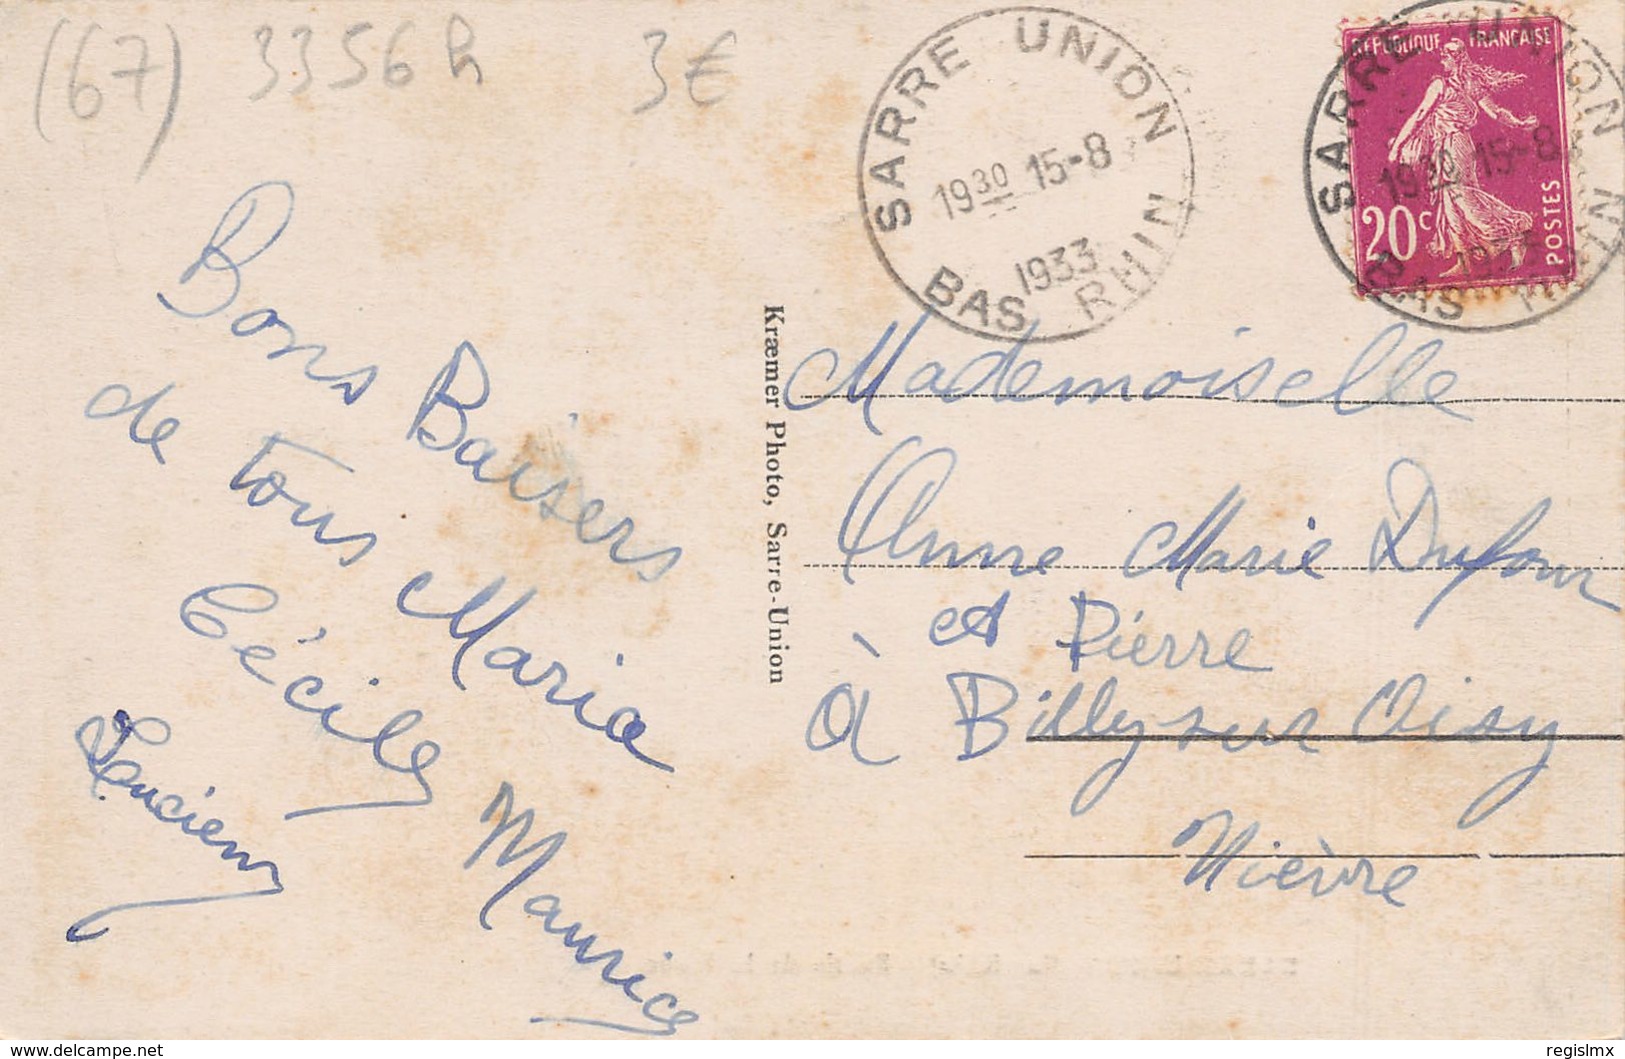 (67) 3356 h 3€
SARRE UNION
19 30 15-8
1933
BAS RHIN
REPUBLIQUE FRANÇAISE
20c
POSTES
SARRE UNION
19 30 15-8
1933
BAS RHIN
Bons Baisers
de tous Maria
Cécile
Lucien
Maurice
Kræmer Photo, Sarre-Union
Mademoiselle
Anne Marie Dufour
et Pierre
à Billy sur Oisy
Nièvre
Visit regislmx's store on www.delcampe.net
regislmx